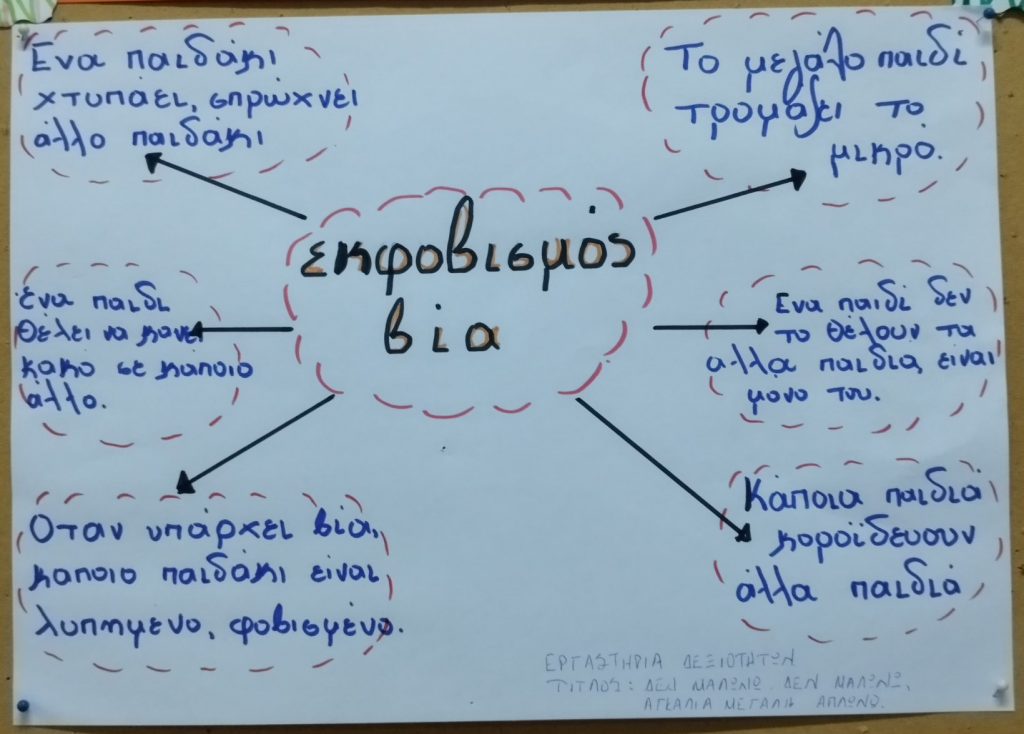 Ενα παιδάκι
χτυπάει, σπρώχνει
άλλο παιδάκι
Το μεγάλο παιδί
τρομάζει το
μικρό.
εκφοβισμός
βία
ένα παιδι
θέλει να κανει
κακό σε κάποιο
άλλο.
Ενα παιδί δεν
το θέλουν τα
αλλα παιδια, είναι
μονο του.
Οταν υπάρχει βία,
καποιο παιδάκι είναι
λυπημενο, φοβισμένο.
Κάποια παιδιά
κοροϊδευουν
άλλα παιδιά
ΕΡΓΑΣΤΗΡΙΑ ΔΕΞΙΟΤΗΤΩΝ
ΤΙΤΛΟΣ: ΔΕΝ ΜΑΛΩΝΩ, ΔΕΝ ΜΑΛΩΝΩ,
ΑΓΚΑΛΙΑ ΜΕΓΑΛΗ ΑΠΛΩΝΩ.